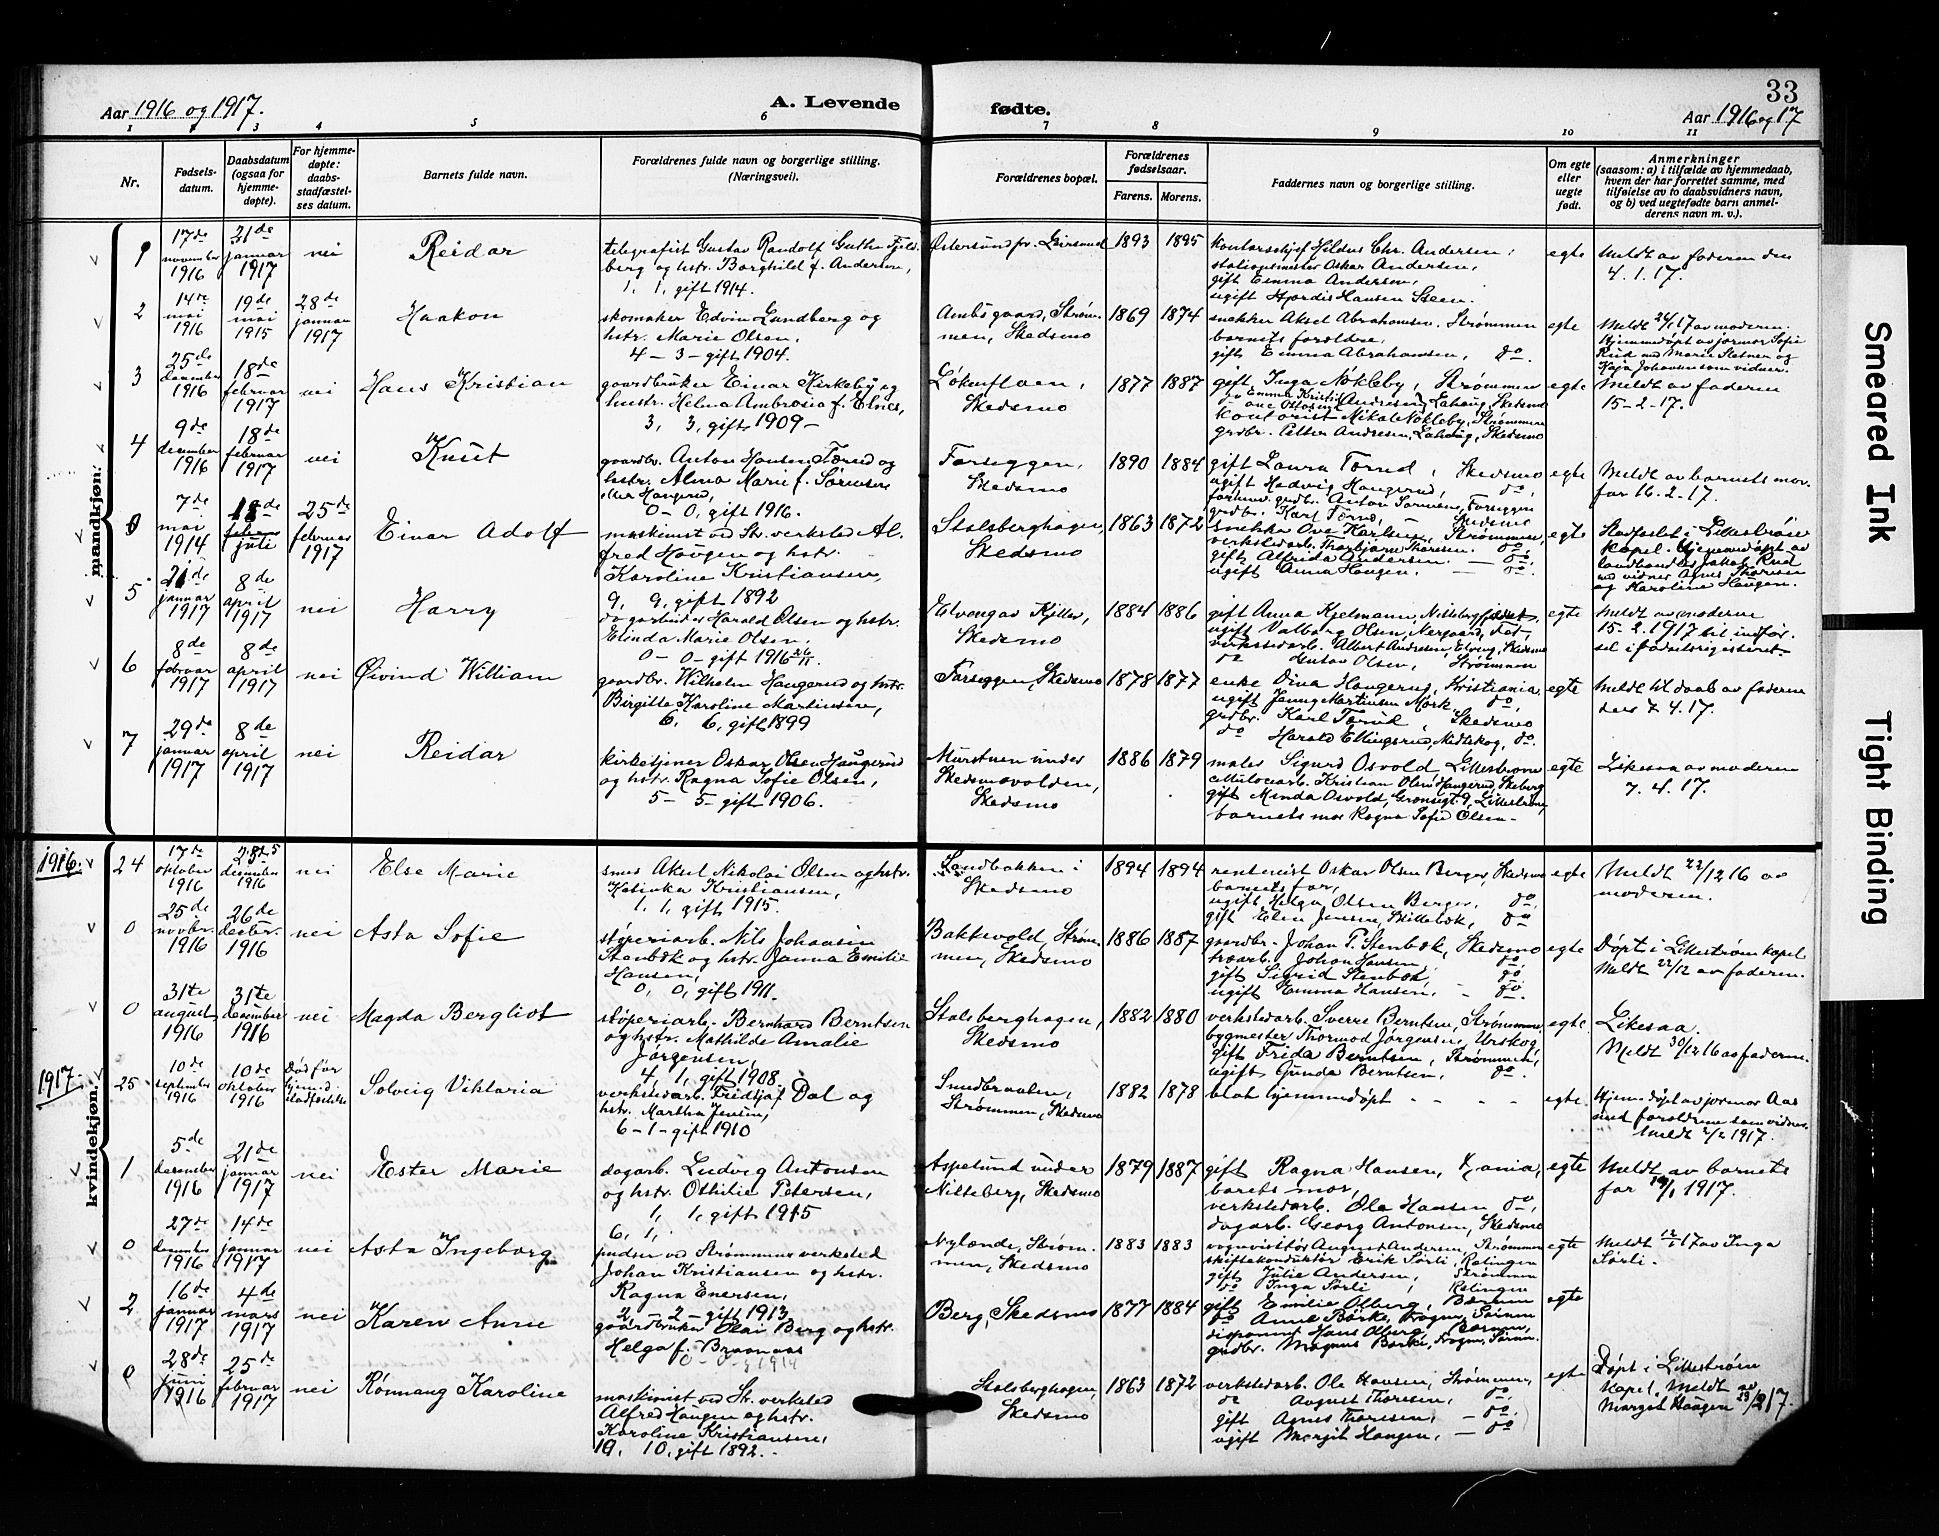 33
Aar 1916 og 1917.
A. Levende fødte.
Aar 1916 og 17
1 2 3 4 5 6 7 8 9 10 11
Nr.
Fødsels-
datum.
Daabsdatum
(ogsaa for
hjemme-
døpte).
For hjemme-
døpte:
daabs-
stadfæstel-
ses datum.
Barnets fulde navn.
Forældrenes fulde navn og borgerlige stilling.
(Næringsvei).
Forældrenes bopæl.
Forældrenes
fødselsaar.
Farens. Morens.
Faddernes navn og borgerlige stilling.
Om egte
eller
uegte
født.
Anmerkninger
(saasom: a) i tilfælde av hjemmedaab,
hvem der har forrettet samme, med
tilføielse av to daabsvidners navn,
og b) ved uegtefødte barn anmel-
derens navn m. v.).
mandkjøn.
1
17de
november
1916
31de
januar
1917
nei
Reidar
telegrafist Gustav Randolf
berg og hstr. Borghild f. Andersen,
1, 1, gift 1914.
1893 1895
stationsmester Oskar Andersen,
gift Emma Andersen,
ugift Hjørdis Hansen Steen.
egte
Meldt av faderen den
4.1.17.
2
14de
mai
1916
19de
mai
1915
28de
januar
1917
Haakon
skomaker Edvin Lundberg og
hstr. Marie Olsen,
4 – 3 – gift 1904.
Strøm-
men, Skedsmo
1869 1874
snekker Aksel Abrahamsen. Strømmen
barnets forældre.
gift Emma Abrahamsen, do.
egte
Meldt 24/1 17 av moderen.
Hjemmedøpt av jormor Sofie
Rud med Marie og
Kaja Johansen som vidner.
3
25de
december
1916
18de
februar
1917
nei
Hans Kristian
gaardbruker Einar Kirkeby og
hustr. Helma Ambrosia f. Elnes,
3, 3, gift 1909 –
Løkenflaen,
Skedsmo
1877 1887
gift Inga Nøkleby, Strømmen
kontorist Nikolai Nøkleby, Strømmen
grdbr. Petter Andresen, Skedsmo
egte
Meldt av faderen
15–2–17.
4
9de
december
1916
18de
februar
1917
nei
Knut
gaardbr. Anton Hansen Tærud og
hstr. Alma Marie f. Sørensen
eller Haugerud,
0 – 0, gift 1916.
Farseggen,
Skedsmo
1890 1884
gift Laura Tærud, Skedsmo
ugift Hedvig Haugerud, do,
grdbr. Karl Tærud, – Skedsmo
egte
Meldt av barnets mor
far 16.2.17.
0
7de
mai
1914
18de
juli
25de
februar
1917
Einar Adolf
maskinist ved Str. verksted Al-
fred Haugen og hstr.
Karoline Kristiansen,
9, 9, gift 1892
Stalsberghagen,
Skedsmo
1863 1872
snekker Ove Karlsen, Strømmen,
verkstedarb. Thorbjørn Thoresen. do,
gift Alfrida Andersen. – do,
ugift Anna Haugen. – do.
egte
Stadfæstet i Lillestrøm
kapel. Hjemmedøpt av
landhandler Johan Rud
med vidner Agnes Thoresen
og Karoline Haugen.
5
21de
januar
1917
8de
april
1917
nei
Harry
dagarbeider Harald Olsen og hstr.
Elinda Marie Olsen,
0 – 0 – gift 1916 26/11
Elvengav Kjeller,
Skedsmo
1884 1886
gift Anna Kjelmann,
ugift Valborg Olsen, Nergaard, Fet
verkstedarb. Albert Andresen, Elveng, Skedsmo
do Gustav Olsen, Strømmen
egte
Meldt av moderen
15–2.1917 til indfør-
sel i fødselsregisteret.
6
8de
februar
1917
8de
april
1917
nei
Øivind William
gaardbr. Wilhelm Haugerud og hstr.
Birgitte Karoline Martinsen,
6, 6, gift 1899
Farseggen, Skedsmo
1878 1877
enke Dina Haugerud, Kristiania,
ugift Jenny Martinsen Mørk do,
grdbr. Karl Tærud, Skedsmo
do Harald Ellingsrud, Nedreskog, do.
egte
Meldt til daab av faderen
ders 7.4.17.
7
29de
januar
1917
8de
april
1917
nei
Reidar
kirketjener Oskar Olsen Haugerud
og hstr. Ragna Sofie Olsen,
5 – 5 – gift 1906.
Murstuen under
Skedsmovolden,
Skedsmo
1886 1879
maler Sigurd Osvold, Lillestrøm
cellulosearb. Kristian Olsen Haugerud, Skeberg
gift Minda Osvold, Grønsegt. 9, Lillestrøm,
barnets mor Ragna Sofie Olsen –
egte
Likesaa av moderen
7.4.17.
1916.
kvindekjøn.
24
17de
oktober
1916
december
1916
nei
Else Marie
smed Aksel Nikolai Olsen og hstr.
Katinka Kristiansen,
1, 1, gift 1915.
Sandbakken i
Skedsmo
1894 1894
rentenist Oskar Olsen Berger, Skedsmo
barnets far,
ugift Helga Olsen Berger, do.
gift Elen Jensen, Skillebæk, do
egte
Meldt 22/12 16 av
moderen.
0
25de
novbr.
1916
26de
decbr.
1916
nei
Asta Sofie
støperiarb. Nils Johansen
Stenbæk og hstr. Janna Emilie
Hansen,
0, 0, gift 1911.
Bakkevold, Strøm-
men, Skedsmo
1886 1887
gaardbr. Johan P. Stenbæk, Skedsmo
træarb. Johan Hansen, do
gift Sigrid Stenbæk, do
ugift Emma Hansen, – do.
egte
Døpt i Lillestrøm kapel.
Meldt 22/12 av faderen.
0
31te
august
1916
31te
desember
1916
nei
Magda Bergliot
støperiarb. Bernhard Berntsen
og hstr. Mathilde Amalie
Jørgensen,
4, 1, gift 1908.
Stalsberghagen,
Skedsmo
1882 1880
verkstedarb. Sverre Berntsen, Strømmen
bygmester Thormod Jørgensen, Urskog
gift Frida Berntsen, Strømmen,
ugift Gunda Berntsen, do.
egte
Likesaa.
Meldt 30/12 16 av faderen.
1917.
25
10de
september
1916
10de
oktober
1916
Død før
hjemmed.
stadfæstelse
Solveig Viktaria
verkstedarb. Fredtjof Dal og
hstr. Martha Jensen,
6 – 1 – gift 1910
Smedbraaten,
Strømmen, Skedsmo
1882 1878
blot hjemmedøpt – – – –
egte.
Hjemmedøpt av jormor Aas
med forældrene som vidner.
Meldt 2/2 1917.
1
5de
desember
1916
21de
januar
1917
nei
Ester Marie
dagarb. Ludvig Antonsen
og hstr. Othilie Petersen,
1, 1, gift 1915
Aspelund under
Nitteberg, Skedsmo
1879 1887
gift Ragna Hansen, Kr.ania,
barnets mor,
verkstedarb. Ole Hansen do,
dagarb. Georg Antonsen, Skedsmo
egte
Meldt av barnets
far 1917.
0
27de
desember
1916
14de
januar
1917
nei
Asta Ingeborg
6, 1,
pudser ved Strømmens verksted
Johan Kristiansen og hstr.
Ragna Enersen,
2 – 2 – gift 1913
Nylænde, Strøm-
men, Skedsmo
1883 1883
vognvisitør August Andersen, Strømmen
skiftekonduktør Erik Sørli, Rælingen
gift Julie Andersen, Strømmen
do Inga Sørli, Rælingen
egte
Meldt 12/1 17 av Inga
Sørli.
2
16de
januar
1917
4de
mars
1917
nei
Karen Anne
gaardbruker Olai Berg og hstr.
Helga f. Braanaas
0 – 0 – g 1914
Berg, Skedsmo
1877 1884
gift Emilie Olberg, Bærum
do Anne Børke, Frogner, Sørum
disponent Hans Olberg, Bærum,
grdbr. Magnus Børke, Frogner, Sørum.
egte
0
28de
juni
1916
25de
februar
1917
nei
Rønnaug Karoline
maskinist ved Str. verksted
Alfred Haugen og hstr.
Karoline Kristiansen,
10, 10, gift 1892. –
Stalsberghagen,
Skedsmo
1863 1872
verkstedarb. Ole Hansen, Strømmen,
do August Thoresen, do,
gift Agnes Thoresen, – do.
ugift Margit Haugen, – do
egte
Døpt i Lillestrøm
Kapel. Meldt av
Margit Haugen 23/2 17.
Smeared Ink
Tight Binding